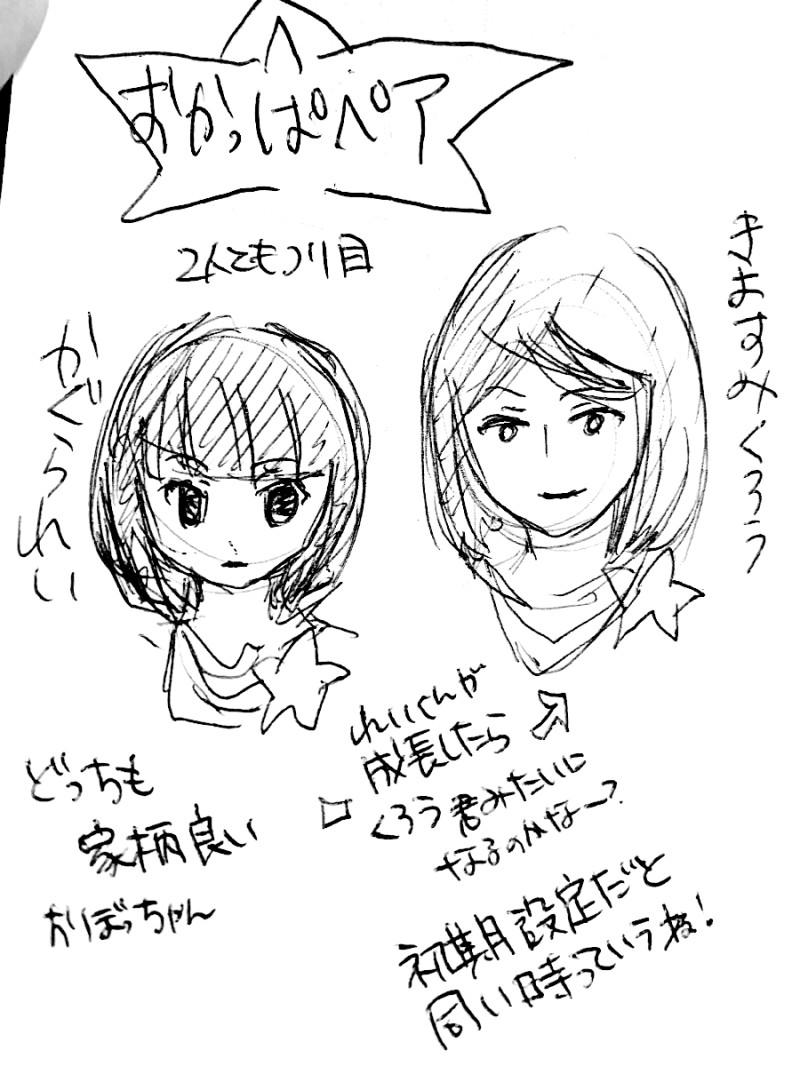 おかっぱペア
2人ともつり目
きよすみくろう
かぐられい
れいくんが
成長したら
くろう君みたいに
なるのかなー?
どっちも
家柄良い
おぼっちゃん
初期設定だと
同い時っていうね!